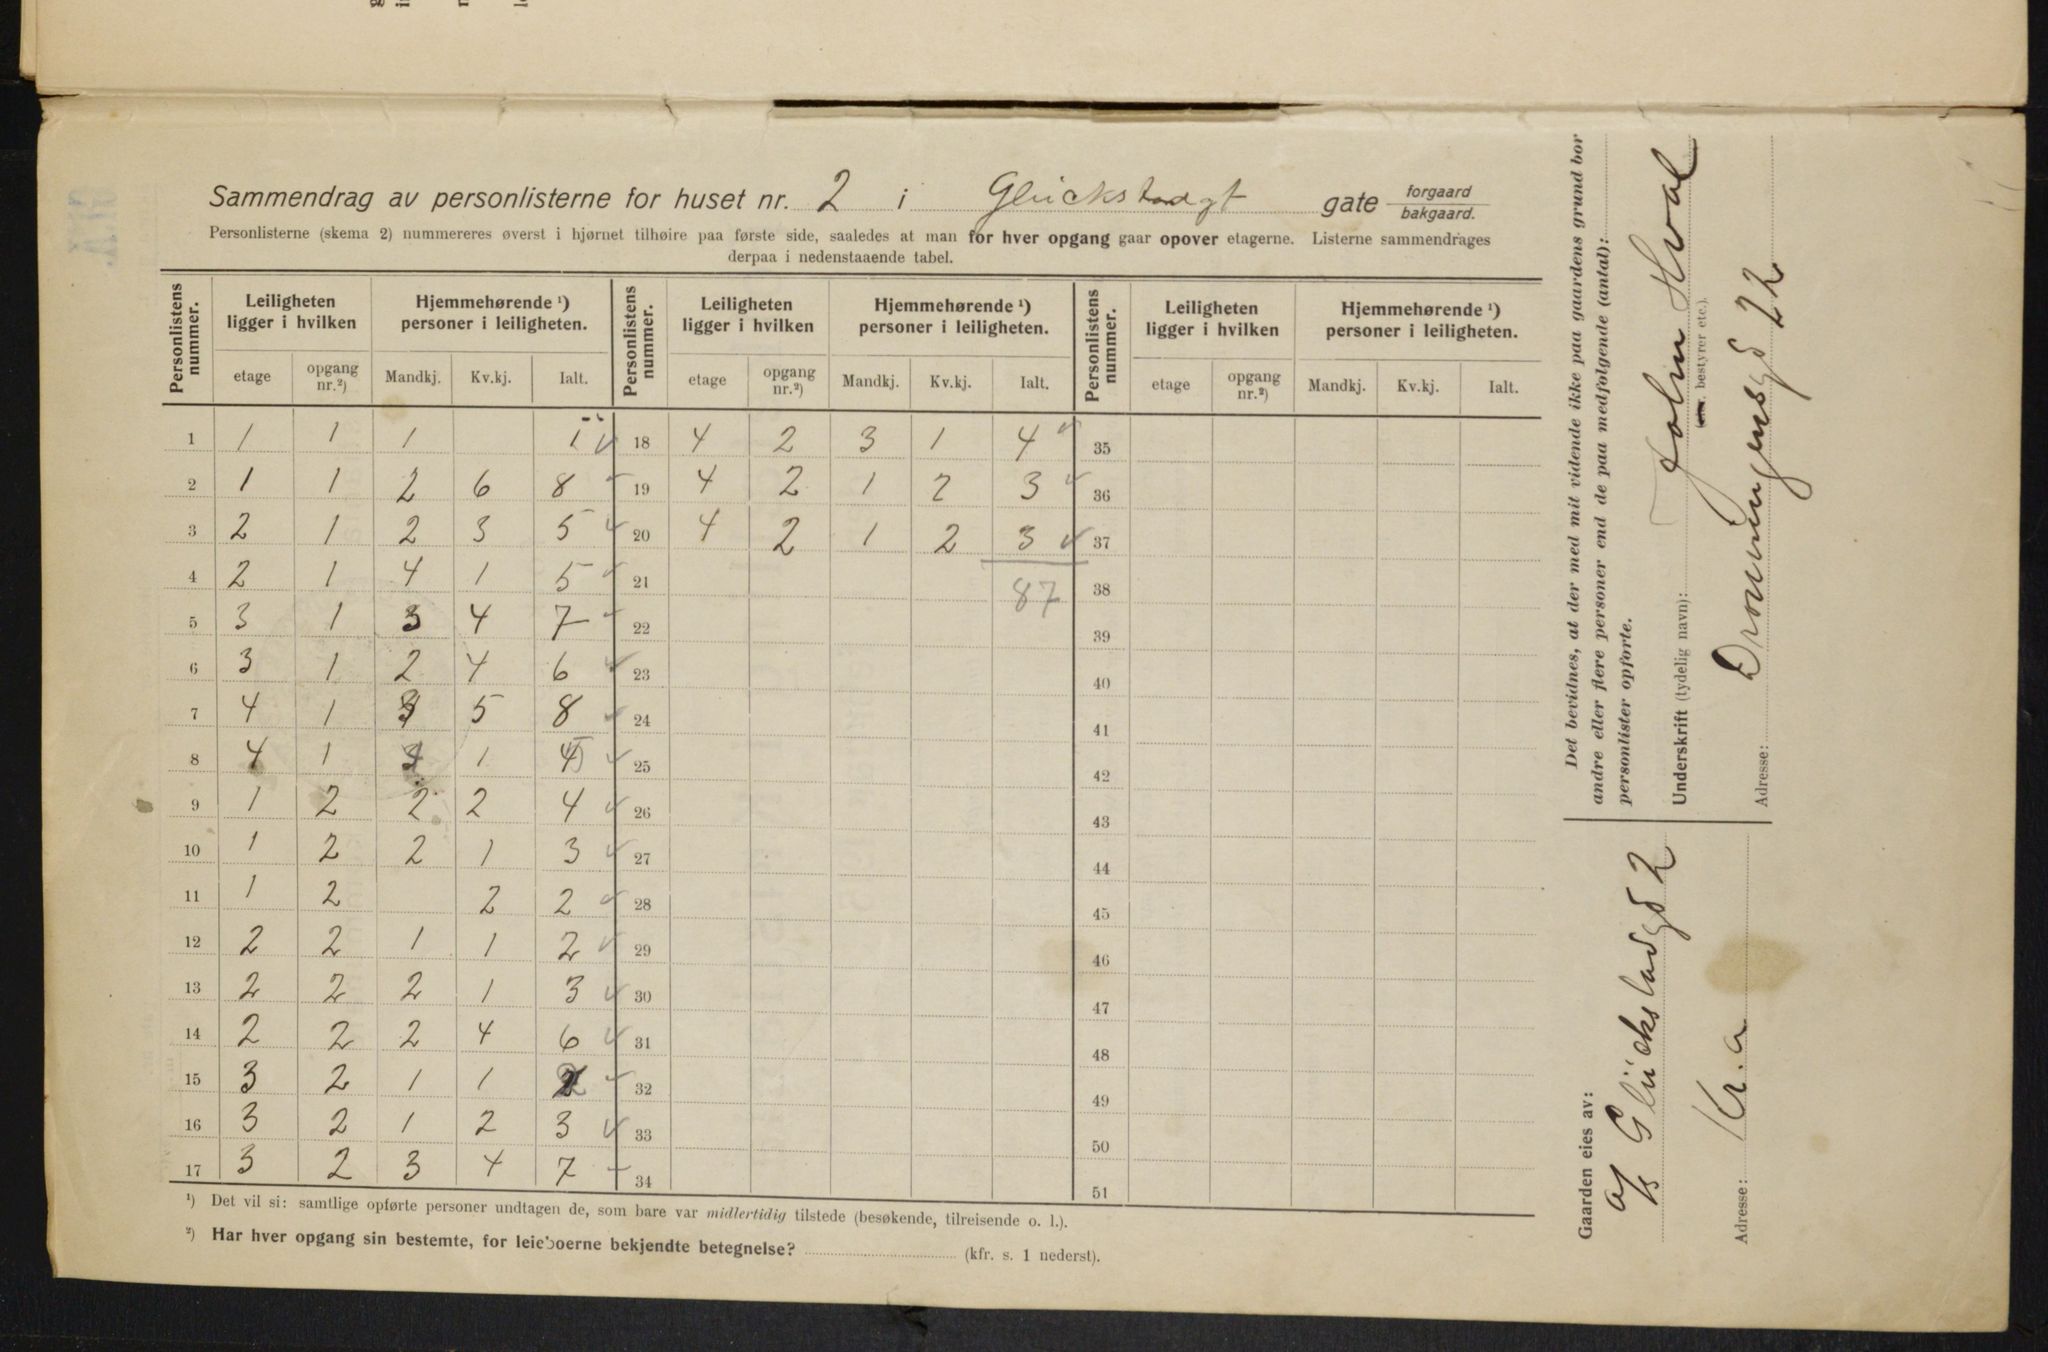 Sammendrag av personlisterne for huset nr. 2 i Glückstadgt gate forgaard bakgaard.
Personlisterne (skema 2) nummereres øverst i hjørnet tilhøire paa første side, saaledes at man for hver opgang gaar opover etagerne. Listerne sammendrages
derpaa i nedenstaaende tabel.
Personlistens nummer. Leiligheten ligger i hvilken Hjemmehørende ¹) personer i leiligheten. Personlistens nummer. Leiligheten ligger i hvilken Hjemmehørende ¹) personer i leiligheten. Personlistens nummer. Leiligheten ligger i hvilken Hjemmehørende ¹) personer i leiligheten.
etage opgang nr.²) Mandkj. Kv.kj. Ialt. etage opgang nr.²) Mandkj. Kv.kj. Ialt. etage opgang nr.²) Mandkj. Kv.kj. Ialt.
1 1 1 1 1 18 4 2 3 1 4 35
2 1 1 2 6 8 19 4 2 1 2 3 36
3 2 1 2 3 5 20 4 2 1 2 3 37
4 2 1 4 1 5 21 87 38
5 3 1 3 4 7 22 39
6 3 1 2 4 6 23 40
7 4 1 3 5 8 24 41
8 4 1 4 1 5 25 42
9 1 2 2 2 4 26 43
10 1 2 2 1 3 27 44
11 1 2 2 2 28 45
12 2 2 1 1 2 29 46
13 2 2 2 1 3 30 47
14 2 2 2 4 6 31 48
15 3 2 1 1 2 32 49
16 3 2 1 2 3 33 50
17 3 2 3 4 7 34 51
¹) Det vil si: samtlige opførte personer undtagen de, som bare var midlertidig tilstede (besøkende, tilreisende o. l.).
²) Har hver opgang sin bestemte, for leieboerne bekjendte betegnelse? (kfr. s. 1 nederst).
Gaarden eies av:
A/S Glückstadgd 2
Adresse: Kr.a
Det bevidnes, at der med mit vidende ikke paa gaardens grund bor
andre eller flere personer end de paa medfølgende (antal):
personlister opførte.
Underskrift (tydelig navn): John Hval
bestyrer etc.).
Adresse: Dronningensgd 22